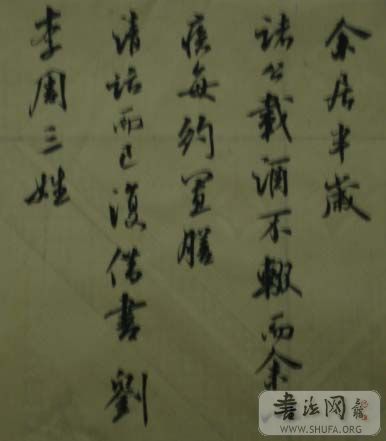 余居半歲
諸公載酒不輟而余
疾每約置膳
清話而已復借書劉
李周三姓
書法网
WWW.SHUFA.ORG